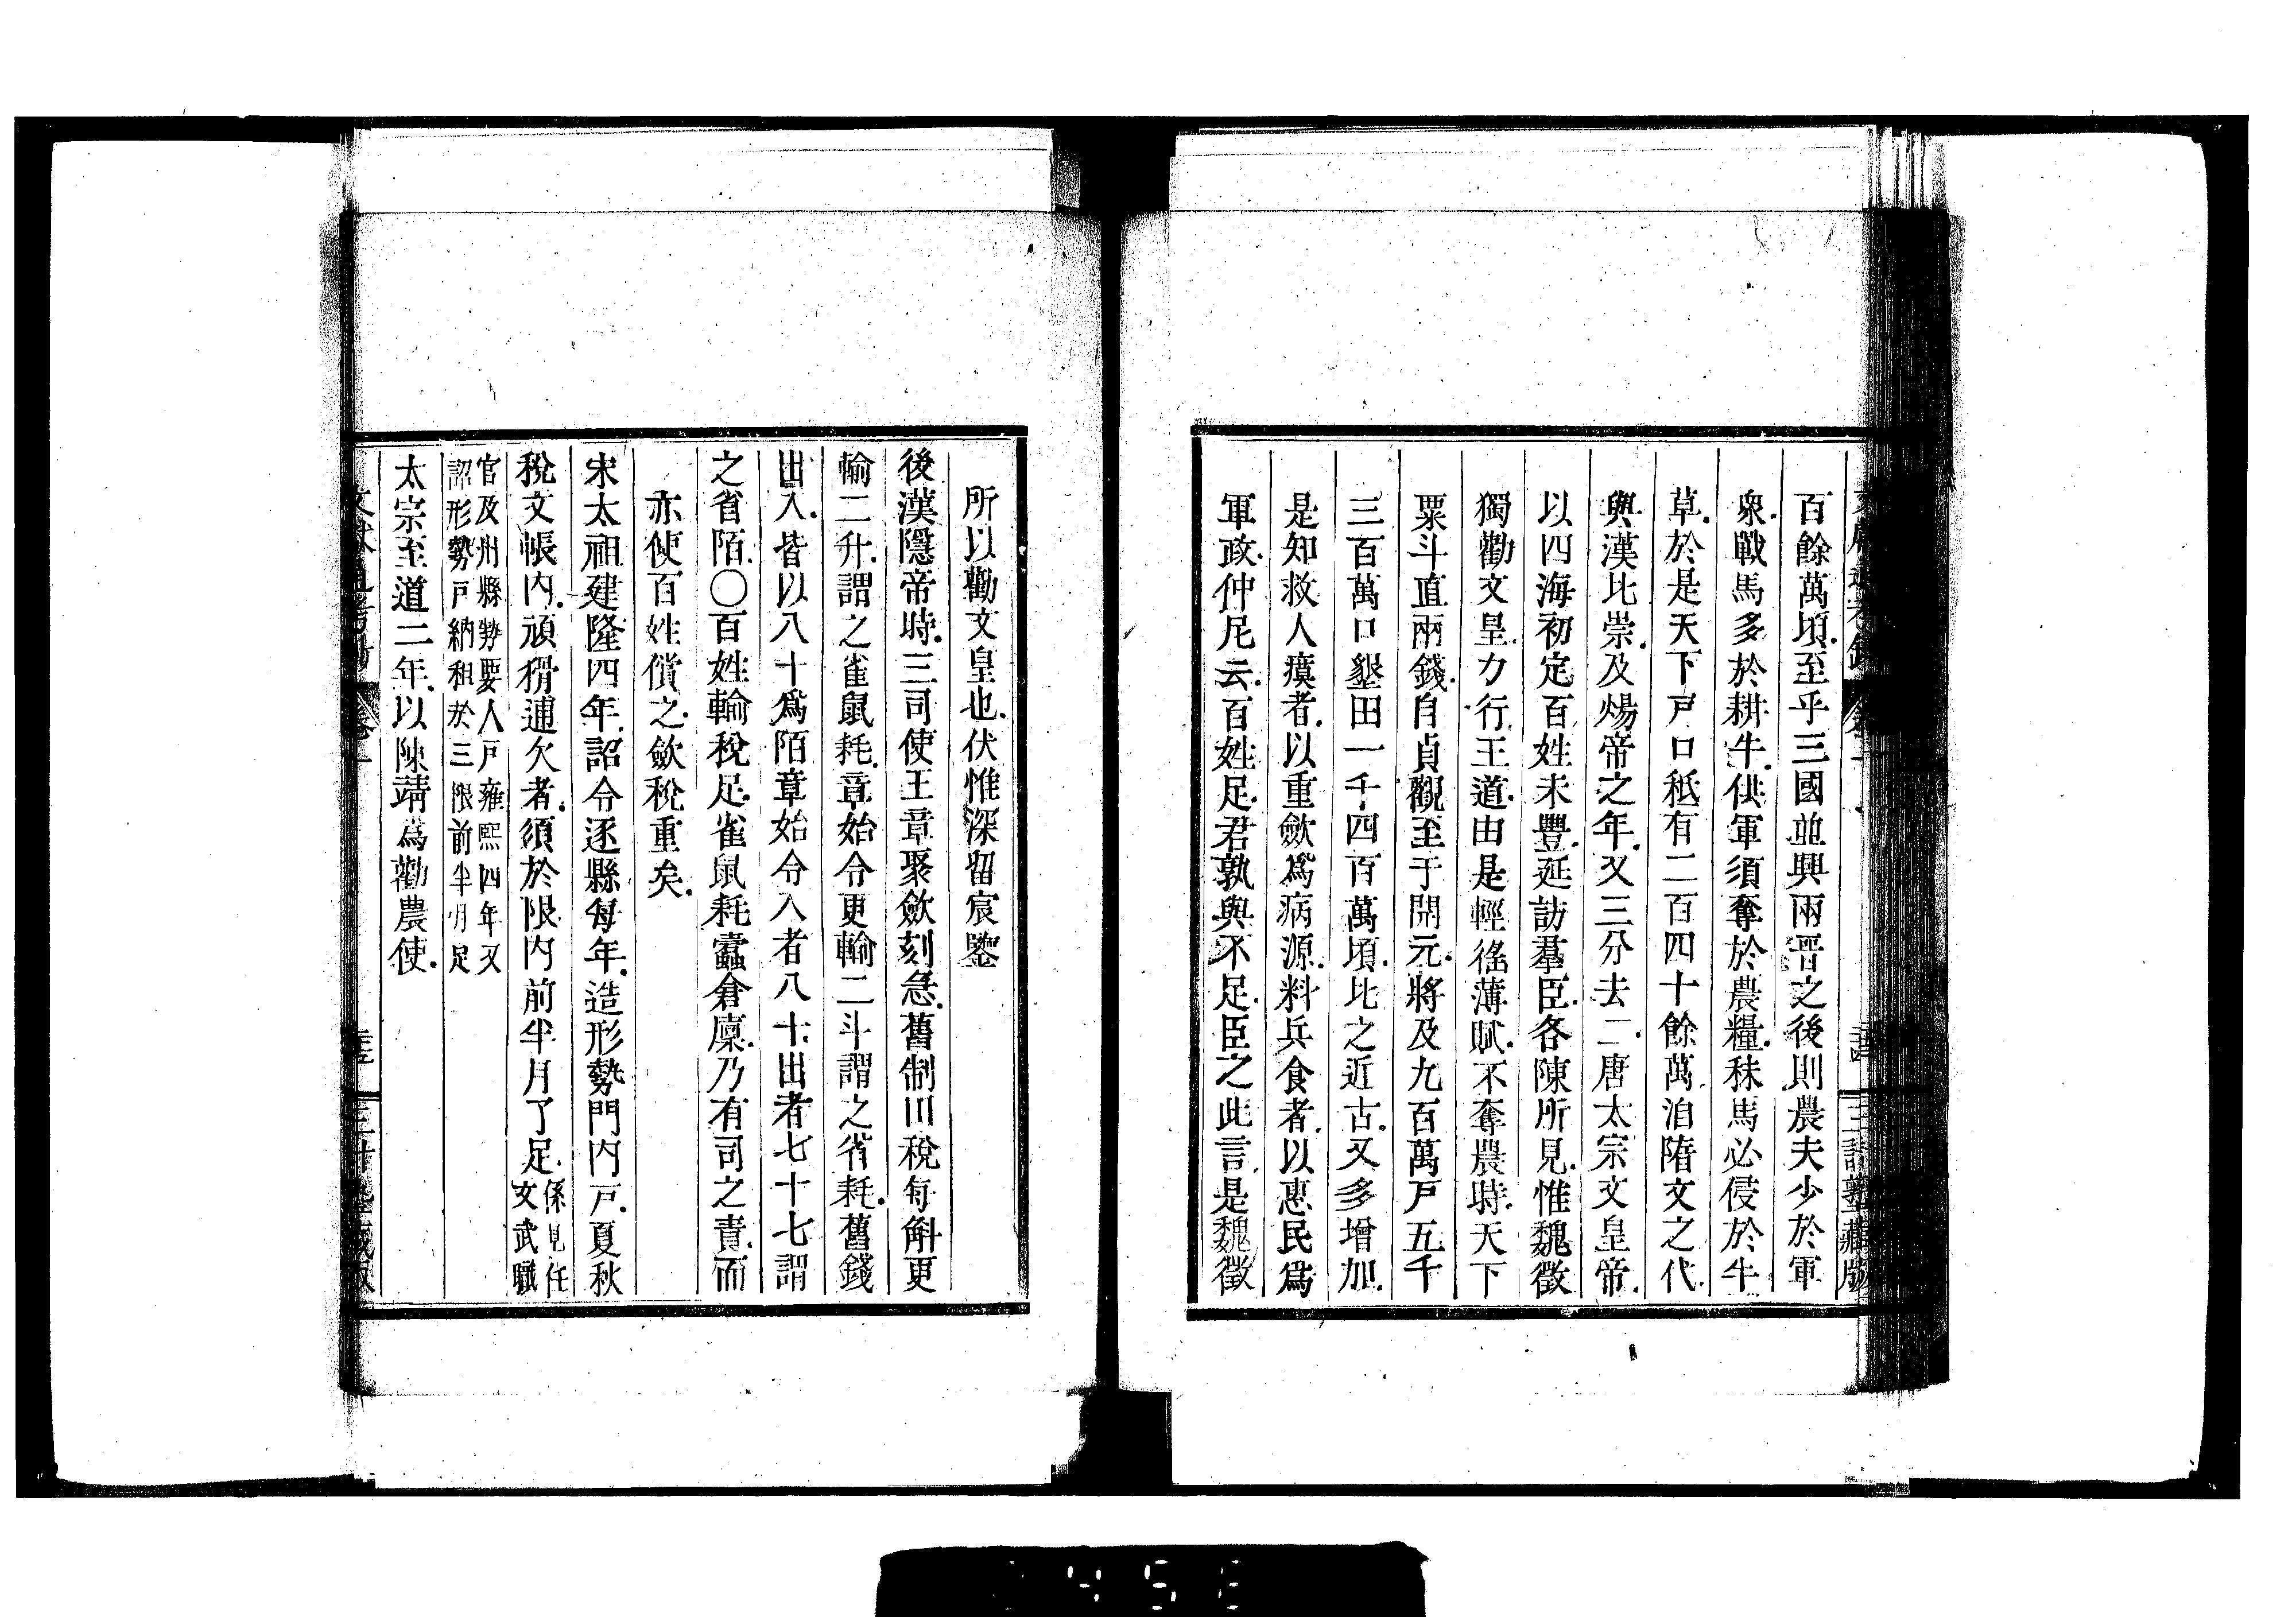 百餘萬頃至乎三國並興兩晉之後則農夫少於軍
衆戰馬多於耕牛供軍須奪於農糧秣馬必侵於牛
草於是天下戸口秪有二百四十餘萬洎隋文之代
與漢比崇及煬帝之年又三分去二唐太宗文皇帝
以四海初定百姓未豐延訪羣臣各陳所見惟魏徵
獨勸文皇力行王道由是輕徭薄賦不奪農時天下
粟斗直兩錢自貞觀至于開元將及九百萬戸五千
三百萬口墾田一千四百萬頃比之近古又多增加
是知救人瘼者以重歛爲病源料兵食者以惠民爲
軍政仲尼云百姓足君孰與不足臣之此言是魏徵
所以勸文皇也伏惟深留宸鑒
後漢隱帝時三司使王章聚歛刻急舊制田稅每斛更
輸二升謂之雀鼠耗章始令更輸二斗謂之省耗舊錢
出入皆以八十爲陌章始令入者八十出者七十七謂
之省陌〇百姓輸稅足雀鼠耗蠹倉廩乃有司之責而
亦使百姓償之歛稅重矣
宋太祖建隆四年詔令逐縣每年造形勢門內戸夏秋
稅文帳內頑猾逋欠者須於限內前半月了足係見任
文武職
官及州縣勢要人戸雍熙四年又
詔形勢戸納租於三限前半月足
太宗至道二年以陳靖爲勸農使